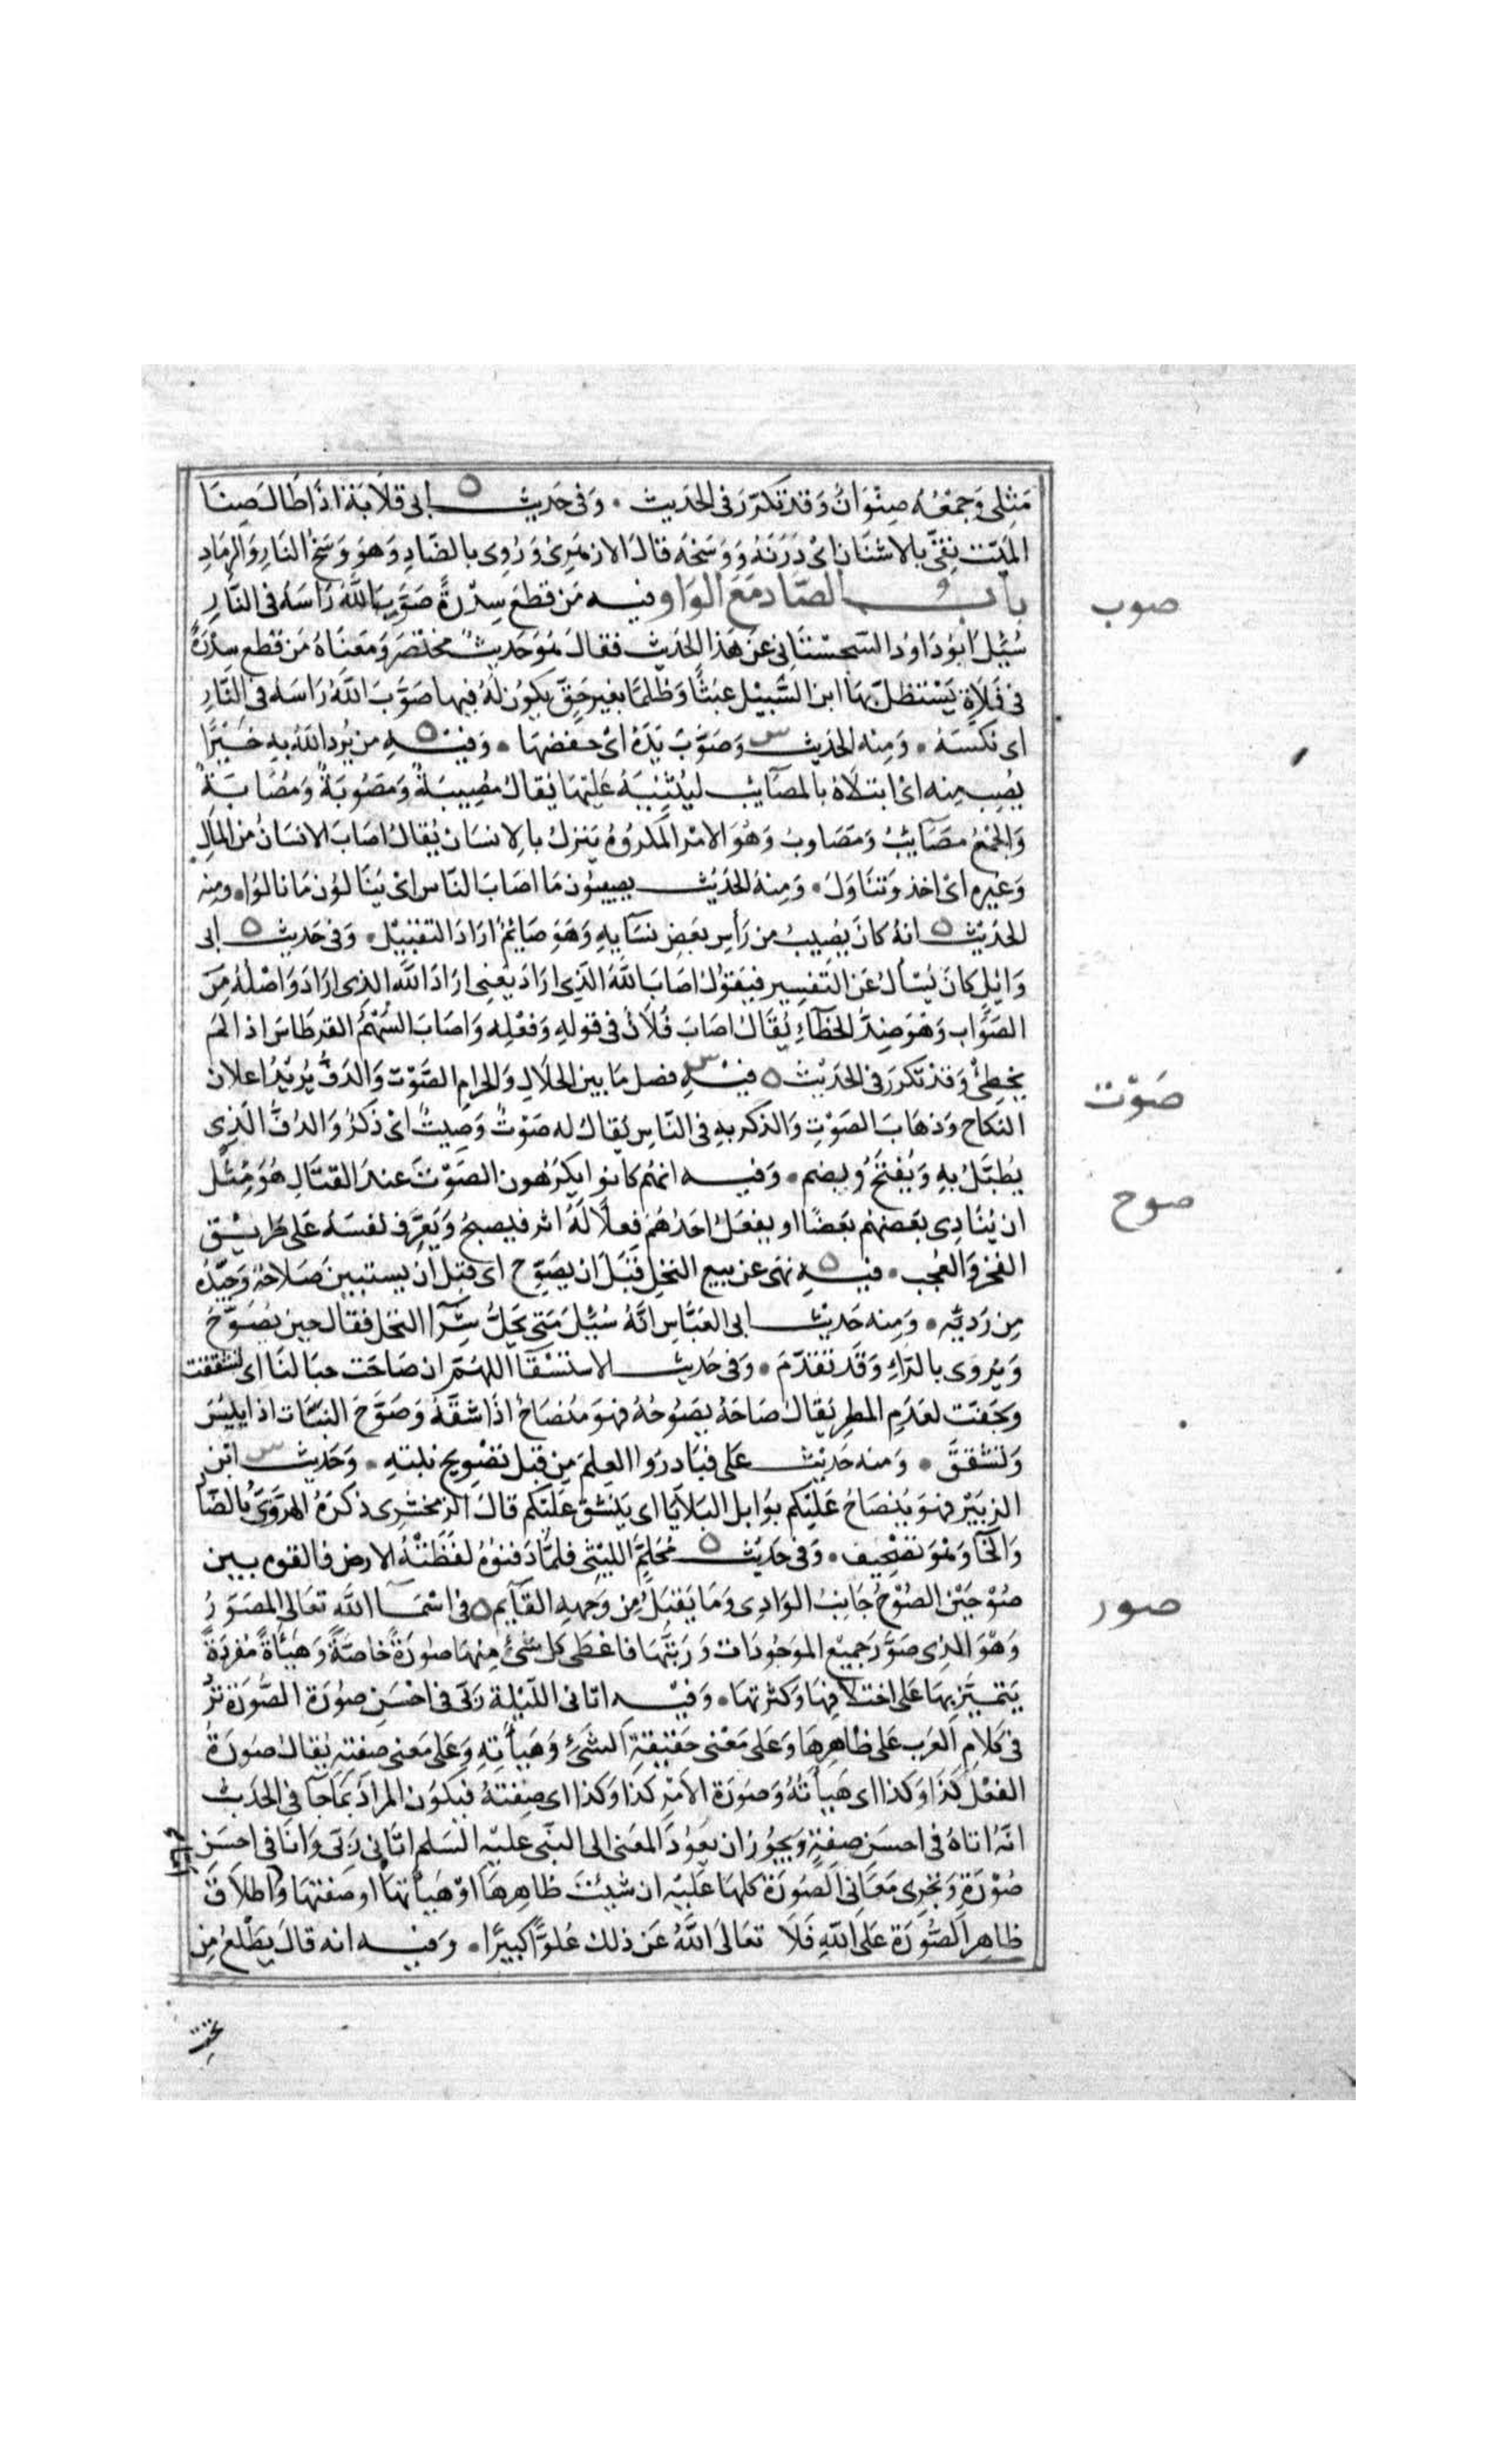 مَثِلى وَجَمْعُه صِنْوَانٌ وَقَد تكَرّرَ فى الحَدِيث • وَفى حَديث ابى قلَابَة اذا طَالَ صِنَا
المَيّت نِقىّ بالاشنَان اىْ دَرَنَهُ وَوَسَخَهُ قالَ الازهَرِىْ وَرُوِى بالضّادِ وَهوَ وَسَخُ النَارِ وَالرمَادِ
باب الصّاد مَعَ الوَاو وفيه مَن قطعَ سِدْرَةً صَوَّبَ اللَّهُ رَاسَهُ فى النَّارِ
صوب
سُئِلَ ابُودَاوُد السّجسْتَانِى عَن هَذا الحَديث فقالَ هُوَ حَديثٌ مختصَر وَمَعنَاهُ مَن قَطع سِدْرَةً
فى فَلَاةٍ يَسْتظلّ بهَا ابن السَّبيْل عبَثًا وَظلمًا بغير حَقّ يكوُن لَهُ فيها صَوَّبَ اللَّهُ رَاسَه فى النَّارِ
اى نكسَهُ • وَمِنه الحَديث وَصَوَّبَ يَدَهُ اىْ خفضهَا • وَفيْه من يُرد اللَّهُ بهِ خَيْرًا
يُصِب مِنه اىْ ابتلاهُ بالمصَآيب ليُثيبَهُ عَليْهَا يقالُ مُصِيبَةٌ وَمَصُوبَةٌ وَمُصَابَةٌ
وَالجَمْعُ مصَآيبُ وَمصَاوبُ وَهُوَ الامْر المَكروُهُ يَنزلُ بالِانسَان يُقالُ اصَابَ الانسَانُ مِنَ المَالِ
وَغيره اىْ اخذ وَتنَاوَلَ • وَمِنهُ الحَدِيْث يصيبُون مَا اصَابَ النّاس اىْ يَنَالوُن مَا نالوُا • ومِنه
الحَدِيْث انهُ كانَ يُصِيبُ من رَأسِ بَعضِ نسَآيهِ وَهوَ صَايمٌ ارَادَ التقبيْل • وَفى حَديث ابى
وَايلٍ كانَ يُسْأل عَن التفسِير فيَقوُل اصَابَ اللَّهُ الَّذِى ارَادَ يَعنِى ارَادَ اللَّهُ الذِى ارَادَ وَاصْلُهُ مِنَ
الصَّوَاب وَهوَ ضِدُّ الخطَآءِ يُقَالُ اصَابَ فُلَانٌ فى قولهِ وَفعْلِه وَاصَابَ السَّهْمُ القرطَاسَ اذا لم
يخطِئْ وَقدْ تكَررَ فى الحَدِيْث فيْهِ فصل مَا بين الحَلَالِ وَالحرامِ الصَّوْت وَالدَفُّ يُريْدُ اعلَان
صَوْت
النكاح وَذهَابَ الصَوْتِ وَالذكر بهِ فى النّاسِ يُقالُ له صَوْتٌ وَصِيتٌ اىْ ذكرٌ وَالدفُّ الَّذِى
يُطبَّلُ بهِ وَيُفتَحُ وَيضم • وَفيه انهُم كانوا يكرَهُون الصَّوْتَ عندَ القتَالِ هُوَ مِثْل
صوح
ان يُنَادِى بَعضهُم بَعضًا او يفعَلُ احَدُهُمْ فِعلًا لَهُ اثر فيصيحُ وَيَعرِّف نفسَهُ عَلى طَرِيْق
الفخر وَالعُجب • فيه نهى عَن بيع النخلِ قَبْلَ ان يصَوِّح اى قبْل ان يستبينَ صَلَاحُهُ وَجَيّدُهُ
مِن رَديّه • وَمِنه حَديْث ابن العَبَّاس انَّهُ سُئِلَ مَتى يَحلُّ شِرَآ النخل فقال حينَ يُصَوّحُ
وَيُروَى بالرَّاءِ وَقَد تقدّمَ • وَفى حَديث الاستسْقَآ اللهُمّ ان صَاحَت جبَالنَا اى تشققت
وَجَفت لعَدَمِ المطر يُقالُ صَاحَهُ يَصُوحُهُ فهوَ مُنصَاحٌ اذَا شقّهُ وَصَوَّحَ النبَات اذا يبِسَ
وَتشقق • وَمنه حَدِيْث عَلى فبَادرُوا العِلمَ مِن قبل تصْوِيح نبتِهِ • وَحَديث ابْن
الزبَيْر فهوَ يُنصَاحُ عَليْكم بوَابل البَلَايَا اى يَنشق عَليْكم قالَ الزمخشرِى ذكرَهُ الهرَوِىّ بالضَا
وَالخَا وَهُوَ تصْحِيف • وَفى حَدِيْث مُحَلِمٍ الليثِى فلمَّا دَفنوُهُ لفظتْهُ الارض فالقوه بين
صُوْحَيْن الصُوْحُ جَانِبُ الوَادِى وَمَا يَقبَلُ مِن وَجههِ القَآيم فى اسْمَآ اللَّه تعَالى المصَوّرُ
صور
وَهْوَ الذِى صَوَّرَ جَمِيْع المَوجُودَات وَرَتبَّهَا فاعْطَى كل شَىْ مِنهَا صُورَةً خَاصَّةً وَهَيْأةً مُفرَدَةً
يَتميَّزُ بهَا عَلى اختلافِهَا وَكثرتهَا • وَفيْه اتانى الليْلة رَبّى فى احْسَنِ صُورَة الصُّورَة تَرُ
فى كلامِ العَرب عَلى ظاهِرِهَا وَعَلى مَعْنى حَقيقةِ الشَىْء وَهَيْأتِهِ وَعَلى مَعنى صِفتِه يُقالُ صُورَةُ
الفعْل كذَا وَكذا اى هَيأتُهُ وَصُورَة الامْرِ كذا وَكذا اى صِفتهُ فيكوُن المرادُ بمَا جَآ فى الحَديث
انّهُ اتاهُ فى احسَن صفةٍ وَيجُوزُ ان يَعُودَ المعَنى الى النبّى عليْه السّلم اتَانِى رَبّى وَانَا فى احسَن
صُوْرَةٍ وَتجْرِى مَعَانِى الصُورَة كلهَا عَليْه ان شيئتَ ظاهِرهَا اوْ هَيْأتهَا او صفتهَا وَاطلاَقَ
ظاهِر الصُّورَة عَلى اللَّهِ فَلَا تعَالى اللَّهُ عَن ذلكَ عُلوًّا كبيرًا • وَفيه انه قالَ يَطْلعُ مِن
تحت